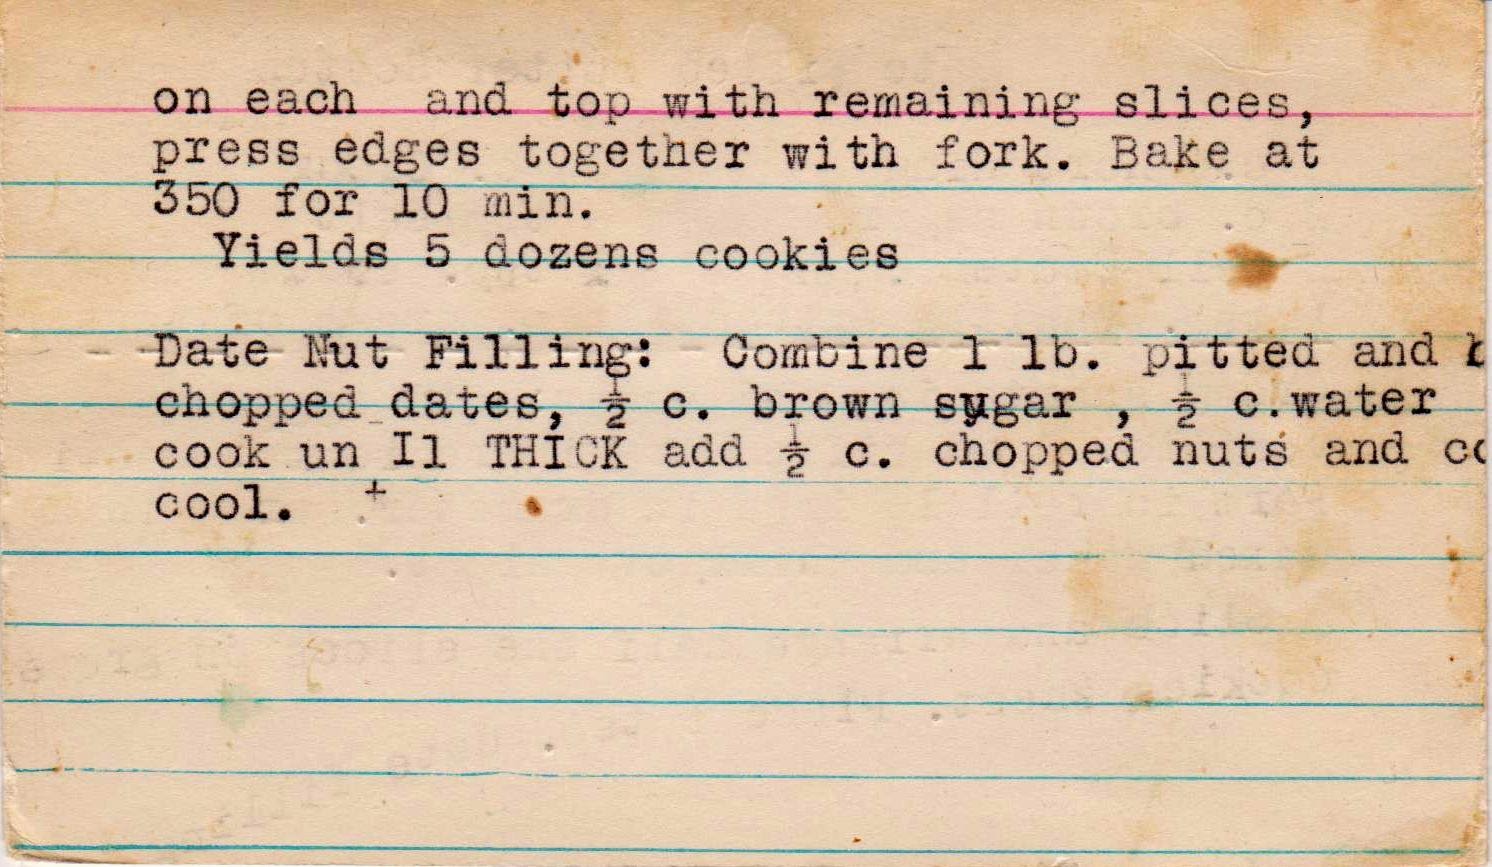 on each  and top with remaining slices,
press edges together with fork. Bake at
350 for 10 min.
Yields 5 dozens cookies
Date Nut Filling:  Combine 1 lb. pitted and
chopped dates, ½ c. brown sugar , ½ c.water
cook un Il THICK add ½ c. chopped nuts and co
cool.  +